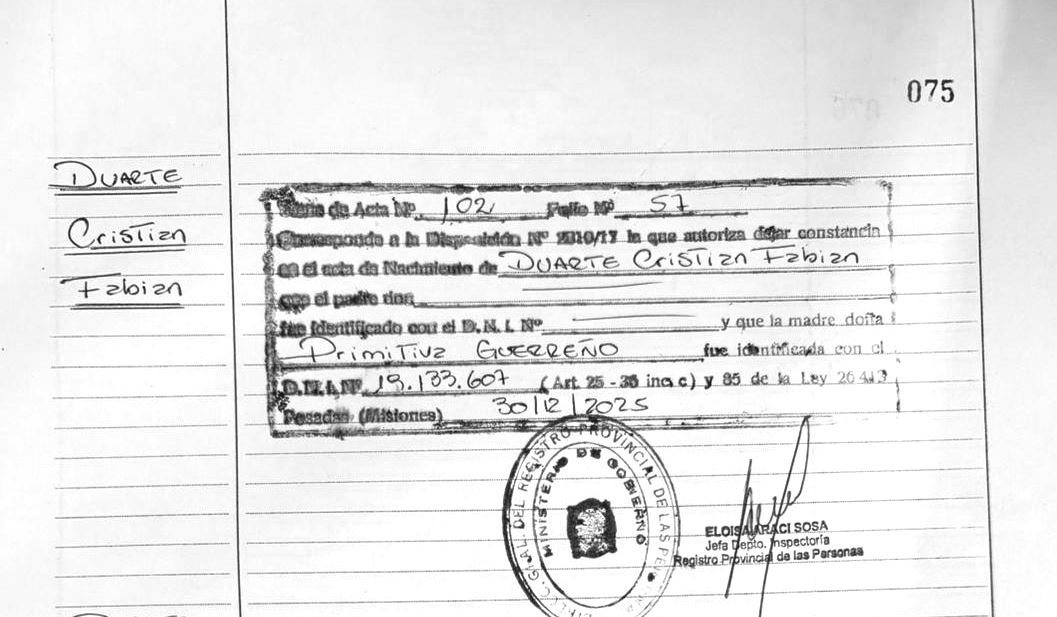 075
DUARTE
Cristian
Fabian
de Acta Nº 102 Folio Nº 57
Corresponde a la Disposición Nº 2010/17 la que autoriza dejar constancia
en el acta de Nacimiento de DUARTE Cristian Fabian
que el padre don
fue identificado con el D. N. I. Nº y que la madre doña
Primitiva GUERREÑO fue identificada con el
D.N.I. Nº 19.133.607 (Art. 25 - 36 inc. c) y 85 de la Ley 26413
Posadas (Misiones) 30/12/2025
GRAL. DEL REGISTRO PROVINCIAL DE LAS
MINISTERIO DE GOBIERNO
ELOISA ARACI SOSA
Jefa Depto. Inspectoría
Registro Provincial de las Personas